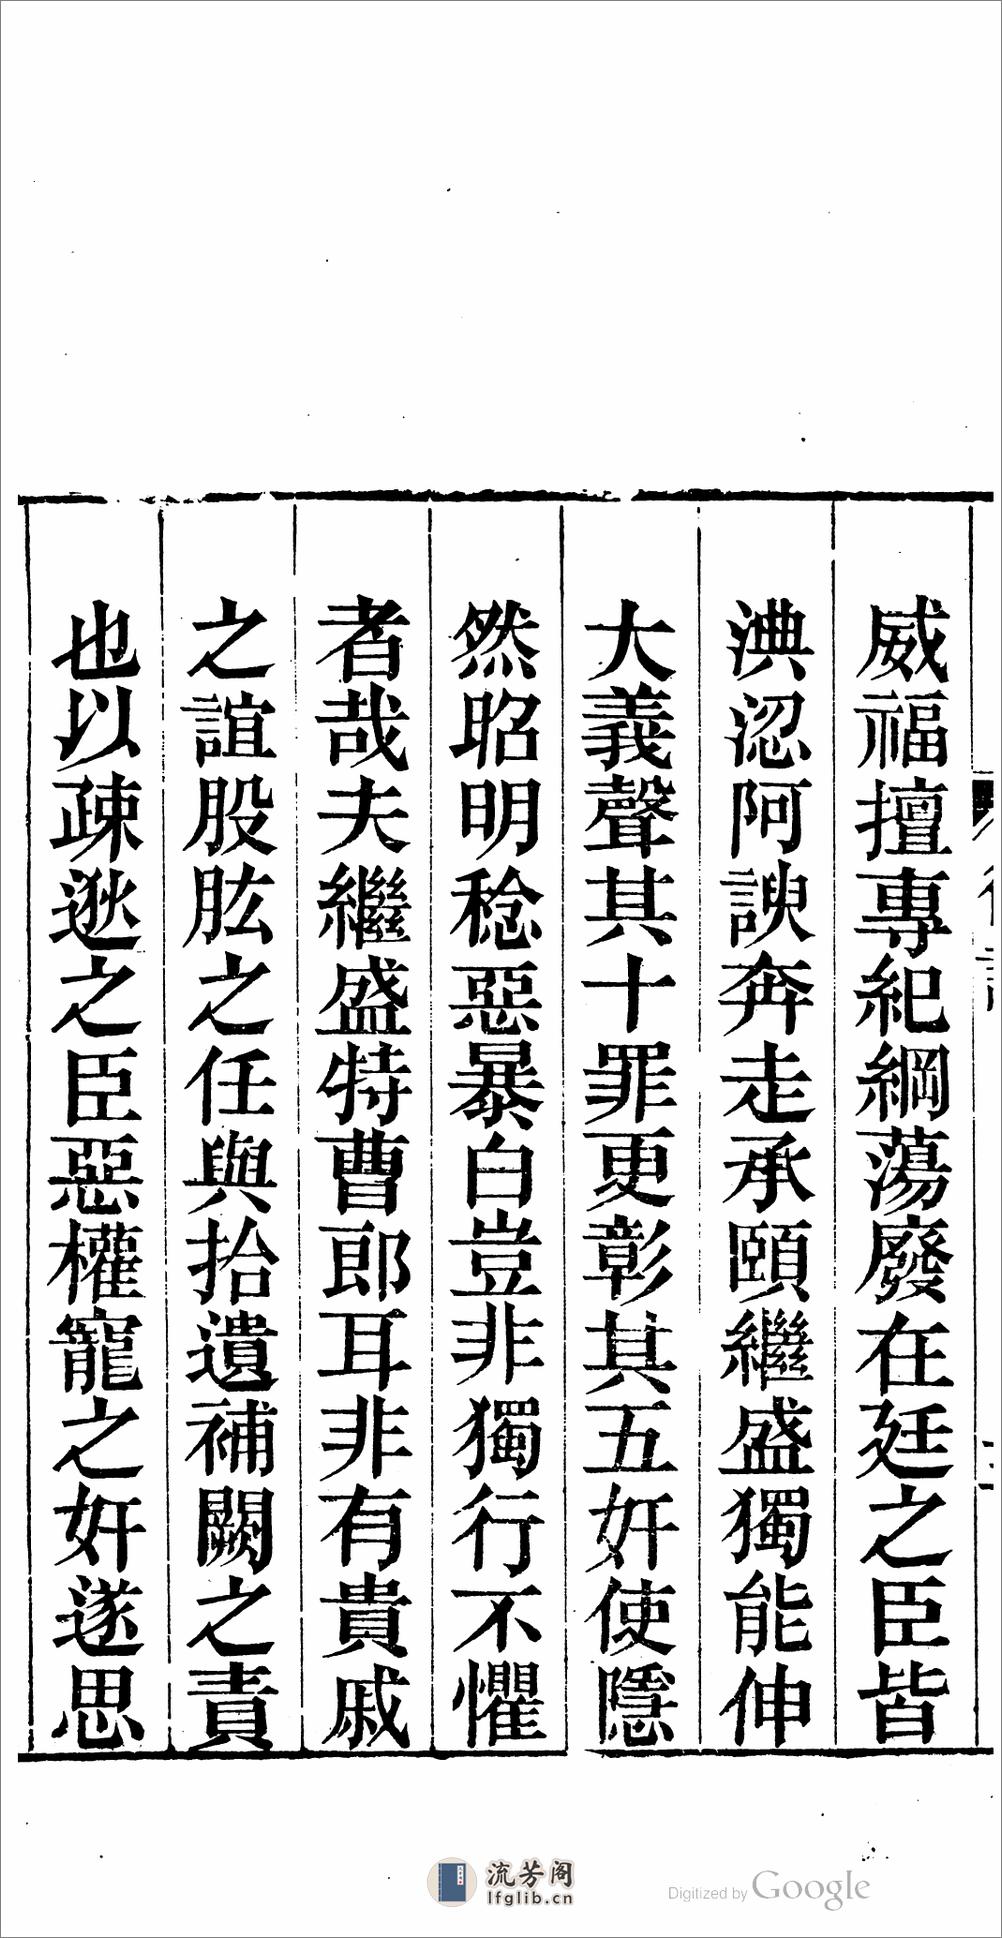 威福擅專紀綱蕩廢在廷之臣皆
淟涊阿諛奔走承頤繼盛獨能伸
大義聲其十罪更彰其五奸使隱
然昭明稔惡暴白豈非獨行不懼
者哉夫繼盛特曹郎耳非有貴戚
之誼股肱之任與拾遺補闕之責
也以疎逖之臣惡權寵之奸遂思
流芳阁
lfglib.cn
Digitized by Google